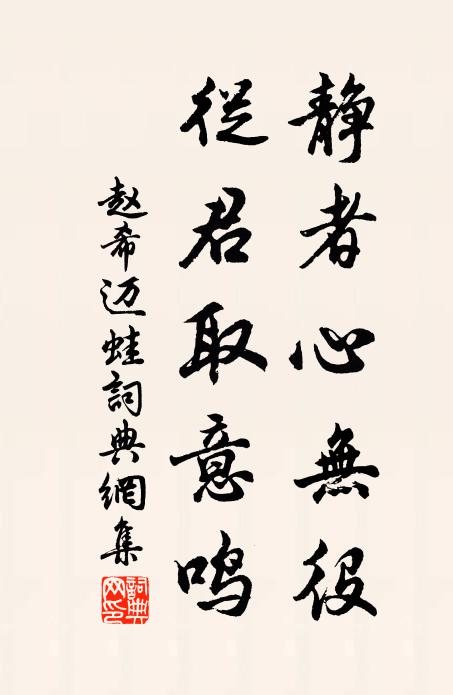 静者心無役
從君取意鸣
赵希迈蛙詞典網集
詞典网印